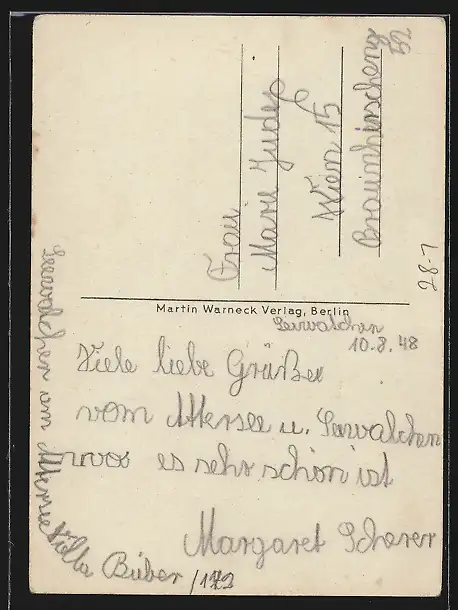 Frau
Marie Judex
Wien 15
Braunhirscheng
52
28-7
Martin Warneck Verlag, Berlin
Seewalchen
10.8.48
Viele liebe Grüße
vom Attersee u. Seewalchen
wo es sehr schön ist
Margaret Scherer
Seewalchen am Attersee Villa Buber /172